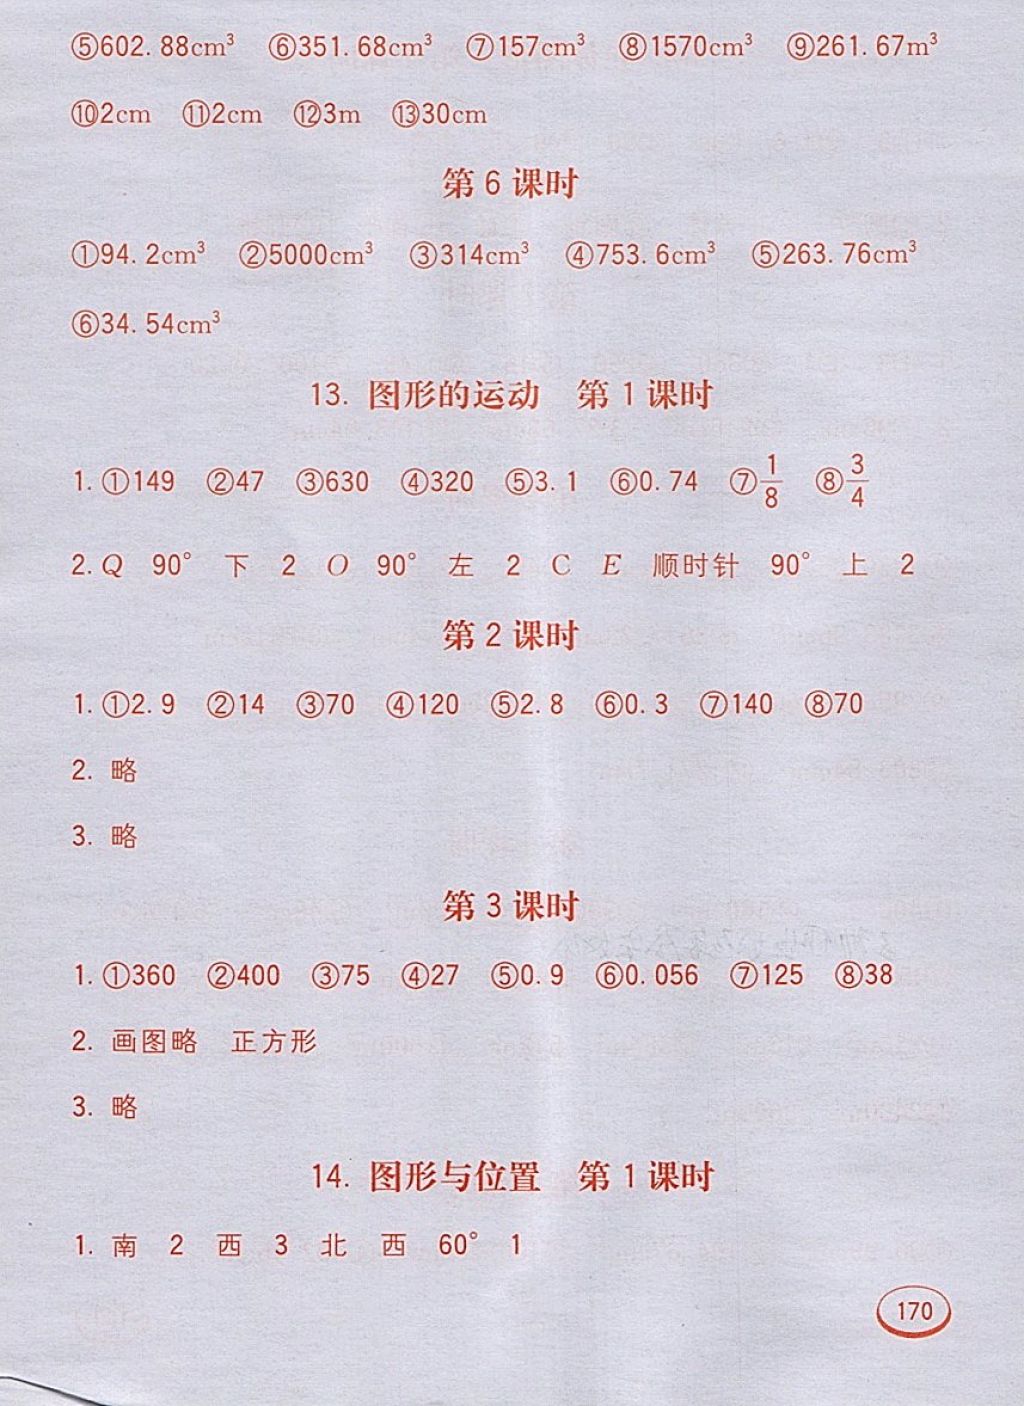 ⑤602.88cm³ ⑥351.68cm³ ⑦157cm³ ⑧1570cm³ ⑨261.67m³
⑩2cm ⑪2cm ⑫3m ⑬30cm
第 6 课时
①94.2cm³ ②5000cm³ ③314cm³ ④753.6cm³ ⑤263.76cm³
⑥34.54cm³
13. 图形的运动 第 1 课时
1. ①149 ②47 ③630 ④320 ⑤3.1 ⑥0.74 ⑦1/8 ⑧3/4
2. Q 90° 下 2 O 90° 左 2 C E 顺时针 90° 上 2
第 2 课时
1. ①2.9 ②14 ③70 ④120 ⑤2.8 ⑥0.3 ⑦140 ⑧70
2. 略
3. 略
第 3 课时
1. ①360 ②400 ③75 ④27 ⑤0.9 ⑥0.056 ⑦125 ⑧38
2. 画图略 正方形
3. 略
14. 图形与位置 第 1 课时
1. 南 2 西 3 北 西 60° 1
170